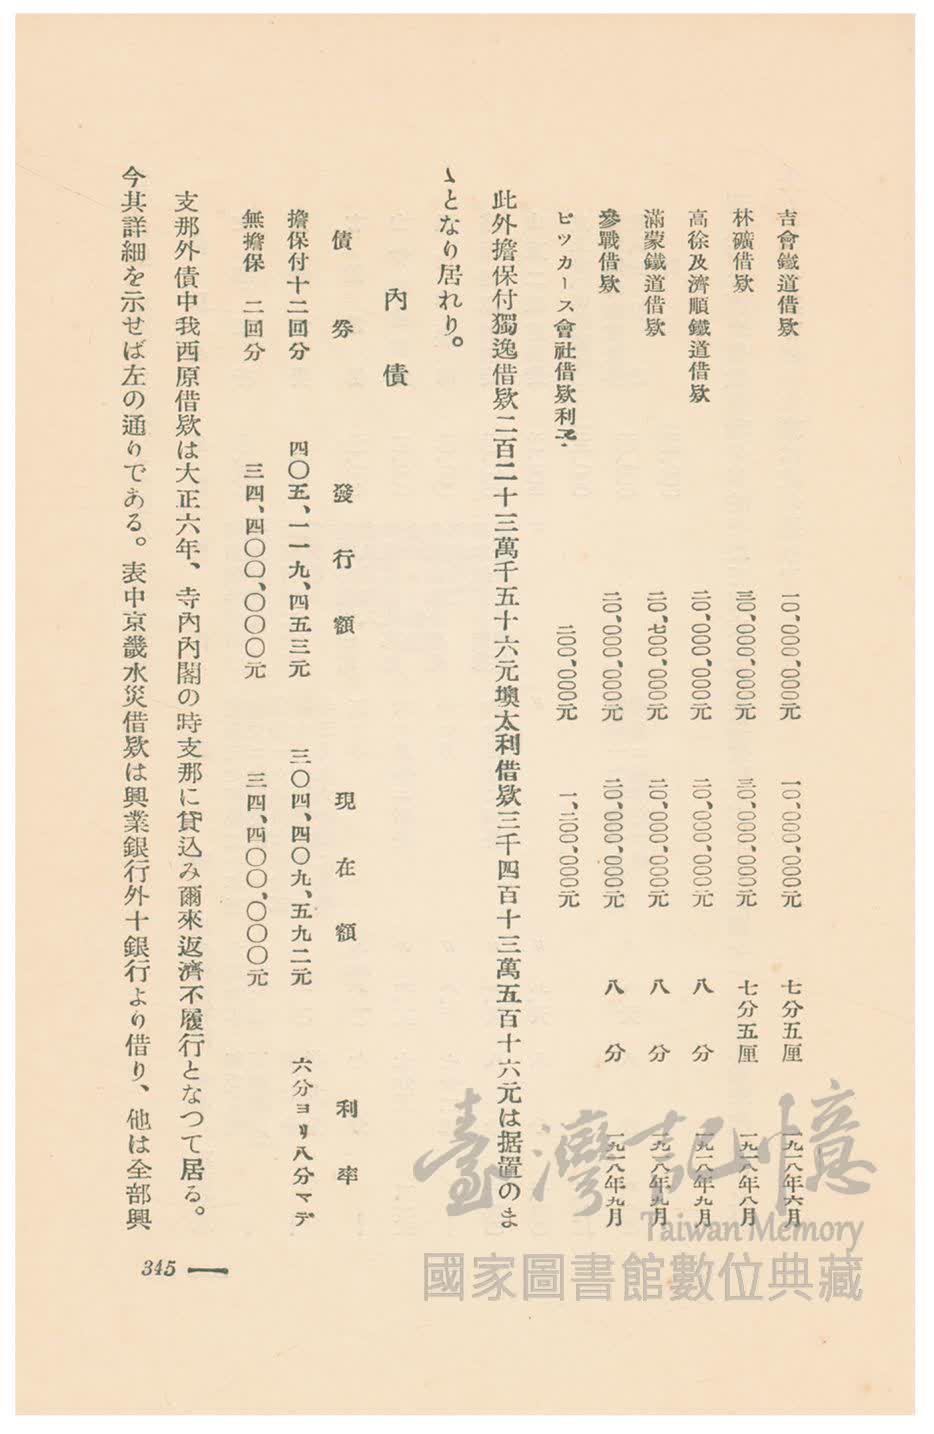 吉會鐵道借欵　一〇、〇〇〇、〇〇〇元　一〇、〇〇〇、〇〇〇元　七分五厘　一九一八年六月
林礦借欵　三〇、〇〇〇、〇〇〇元　三〇、〇〇〇、〇〇〇元　七分五厘　一九一八年八月
高徐及濟順鐵道借欵　二〇、〇〇〇、〇〇〇元　二〇、〇〇〇、〇〇〇元　八分　一九一八年九月
滿蒙鐵道借欵　二〇、七〇〇、〇〇〇元　二〇、〇〇〇、〇〇〇元　八分　一九一八年九月
參戰借欵　二〇、〇〇〇、〇〇〇元　二〇、〇〇〇、〇〇〇元　八分　一九一八年九月
ピツカース會社借欵利子　二〇〇、〇〇〇元　一、二〇〇、〇〇〇元
此外擔保付獨逸借欵二百二十三萬千五十六元墺太利借欵三千四百十三萬五百十六元は据置のま
ゝとなり居れり。
內債
債券　發行額　現在額　利率
擔保付十二回分　四〇五、一一九、四五三元　三〇四、四〇九、五九二元　六分ヨリ八分マデ
無擔保　二回分　三四、四〇〇、〇〇〇元　三四、四〇〇、〇〇〇元
支那外債中我西原借欵は大正六年、寺內內閣の時支那に貸込み爾來返濟不履行となつて居る。
今其詳細を示せば左の通りである。表中京畿水災借欵は興業銀行外十銀行より借り、他は全部興
345
臺灣記憶
Taiwan Memory
國家圖書館數位典藏